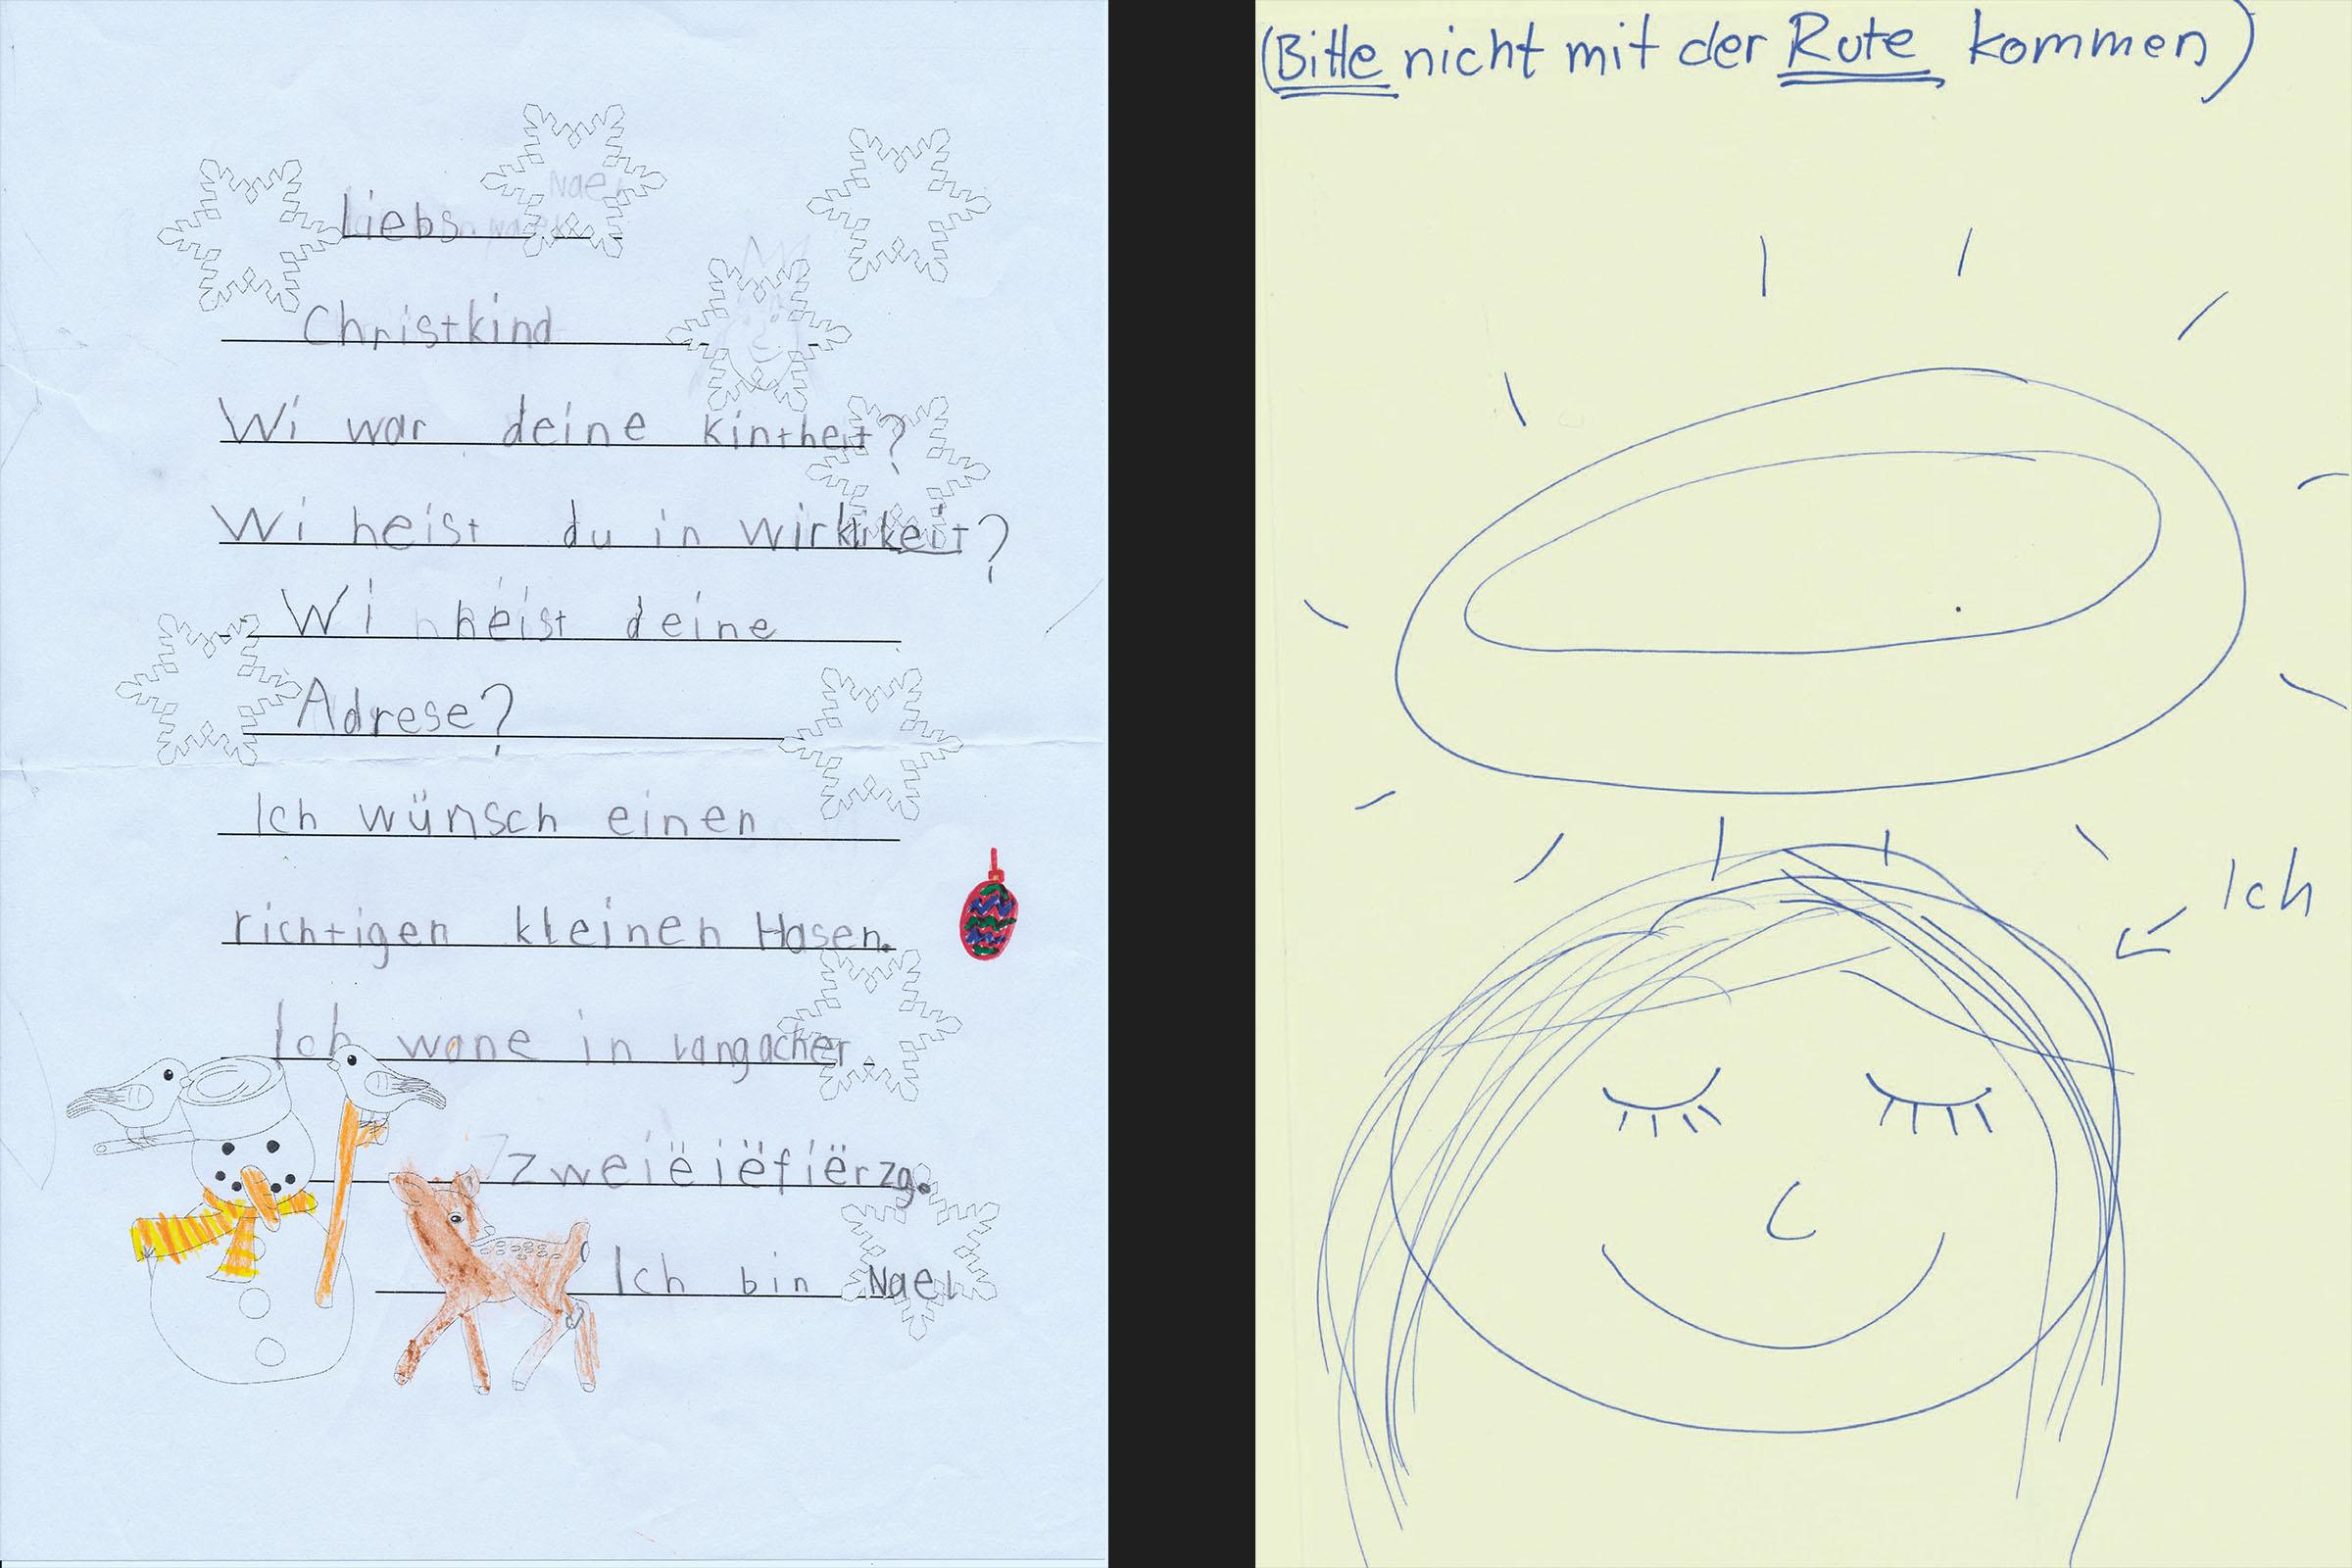 Liebs
Christkind
Wi war deine kintheit?
Wi heist du in wirklikeit?
Wi heist deine
Adrese?
Ich wünsch einen
richtigen kleinen Hasen.
Ich wone in
Ich bin Nael
(Bitte nicht mit der Rute kommen)
Ich